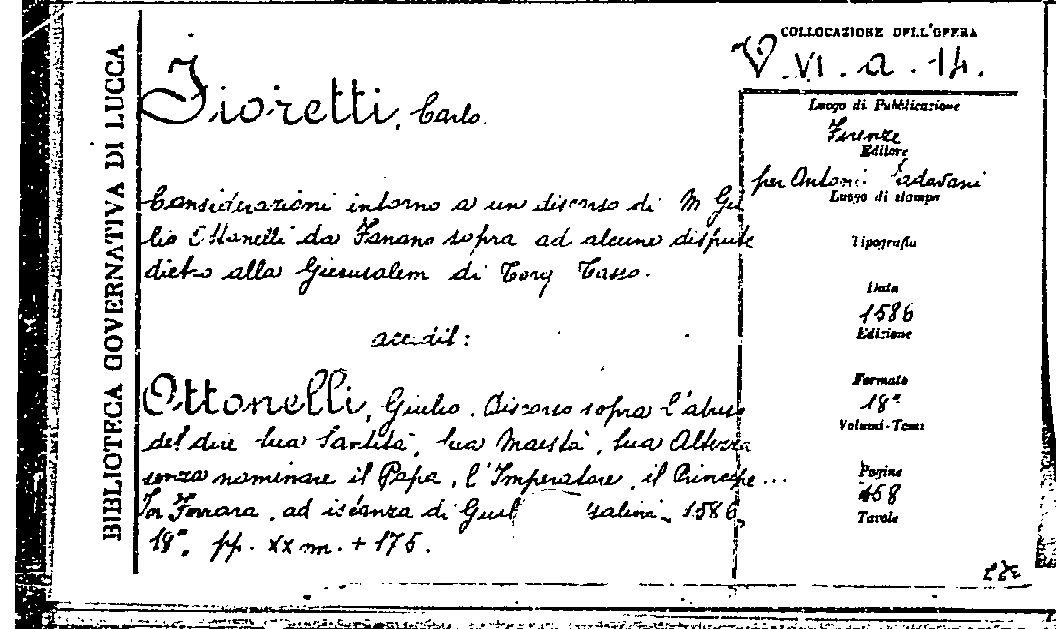 BIBLIOTECA GOVERNATIVA DI LUCCA
COLLOCAZIONE DELL'OPERA
V.VI.a.14.
Fioretti, Carlo.
Luogo di Pubblicazione
Firenze
Editore
per Antoni Padovani
Luogo di stampa
Tipografia
Data
1586
Edizione
Formato
18°
Volumi-Tomi
Pagine
458
Tavole
Considerazioni intorno a un discorso di M Giu
lio Ottonelli da Fanano sopra ad alcune dispute
dietro alla Gierusalem di Torq Tasso.
accedit:
Ottonelli, Giulio. Discorso sopra l'abuso
del dire Sua Santità, Sua Maestà, Sua Altezza
senza nominare il Papa, l'Imperatore, il Principe...
In Ferrara, ad istanza di Giul salini. 1586,
18°. pp. XX m. + 175.